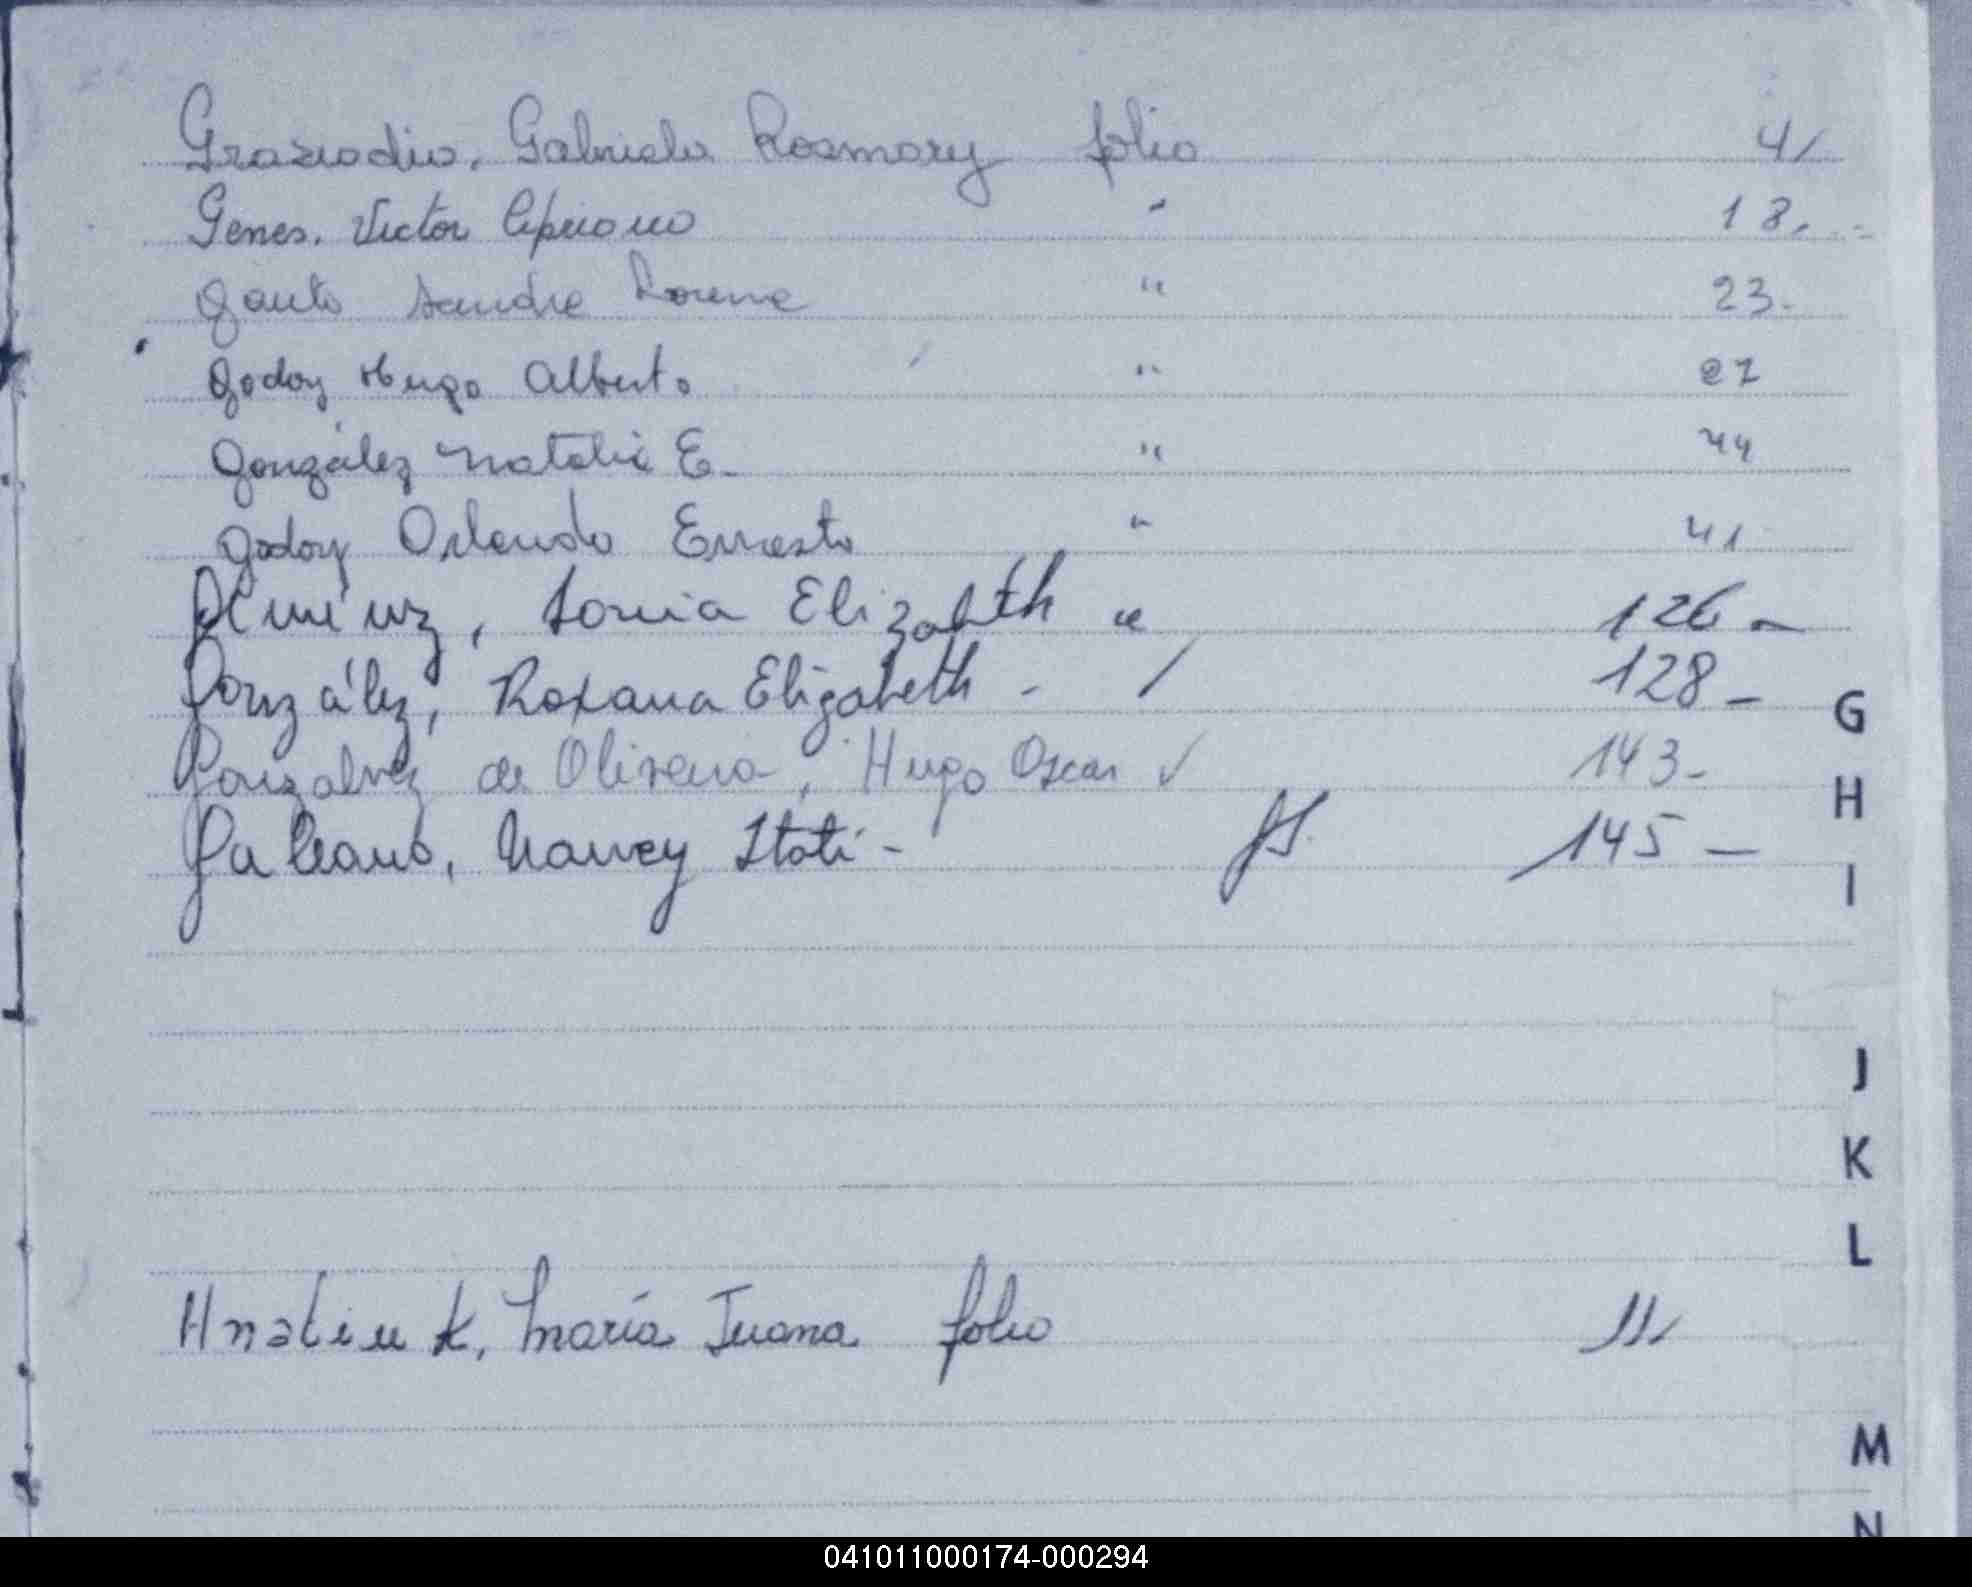 Graziadio, Gabriela Rosmary folio 4,
Genes, Victor Cipriano " 18,
Gauto Sandra Lorena " 23.
Godoy Hugo Alberto " 27
González Natalia E. " 44
Godoy Orlando Ernesto " 41
Giménez, Sonia Elizabeth " 126 -
González, Roxana Elizabeth - 128 -
G
Gonzalvez de Oliveira, Hugo Oscar 143-
H
Galeano, Nancy Itatí - 145 -
I
J
K
L
Hnatiuk, María Juana folio 11,
M
N
041011000174-000294